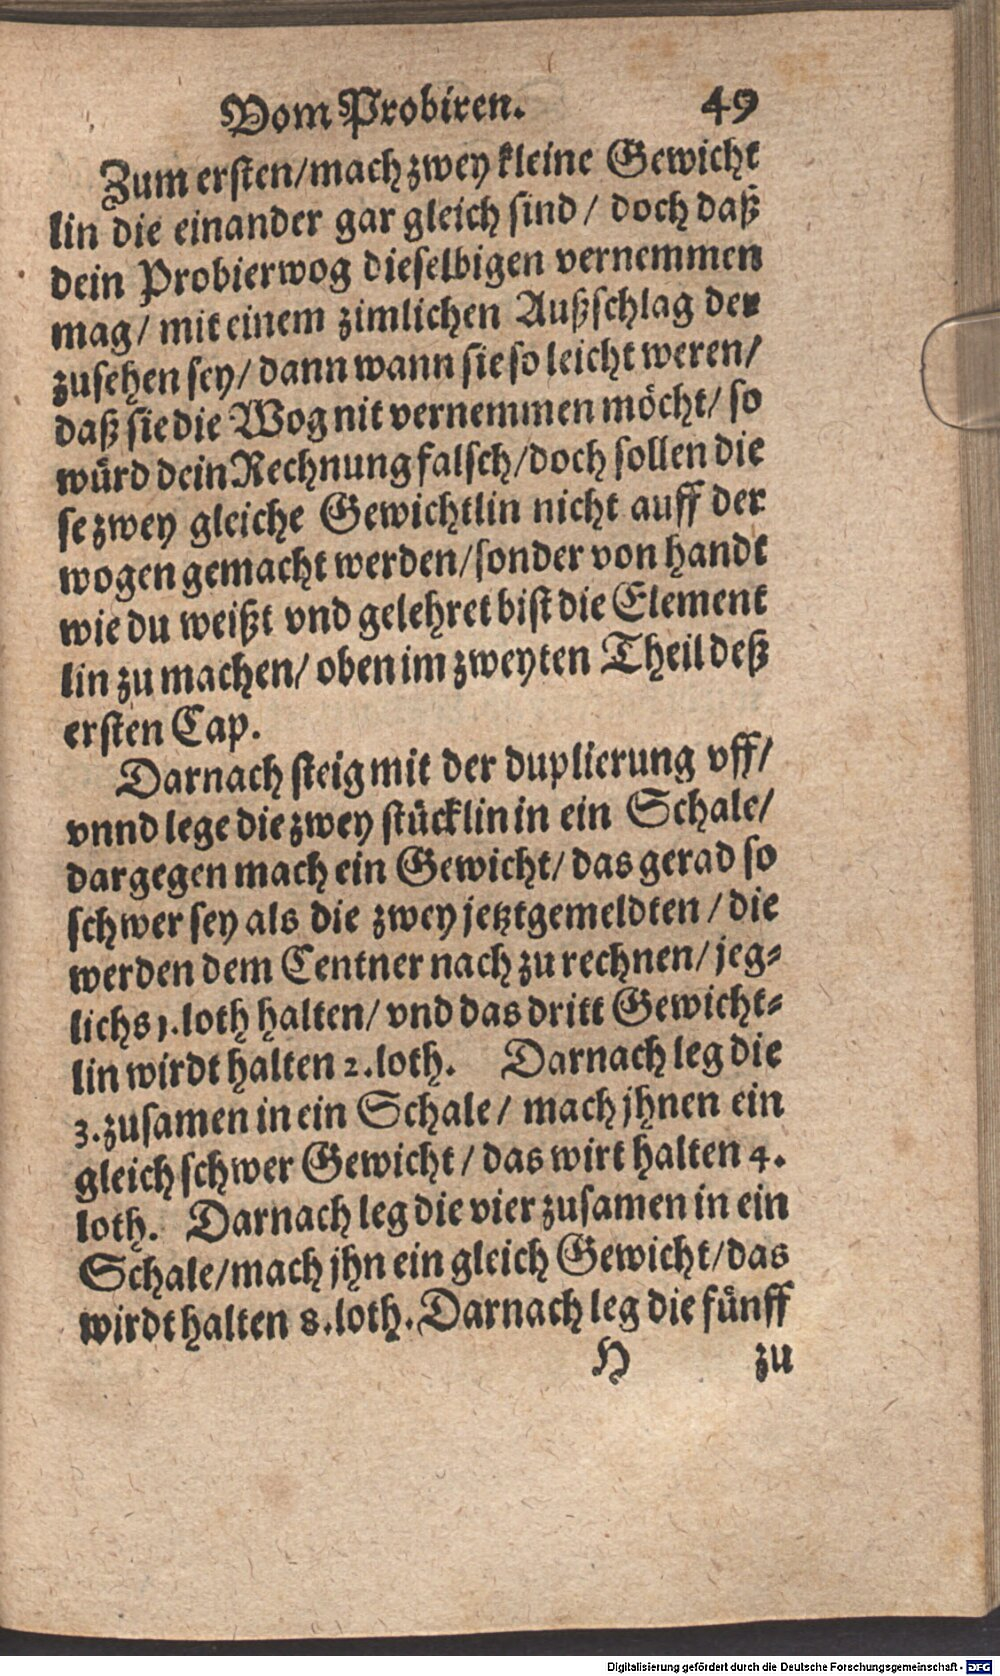 Vom Probiren. 49
Zum ersten/mach zwey kleine Gewicht
lin die einander gar gleich sind/ doch daß
dein Probierwog dieselbigen vernemmen
mag/ mit einem zimlichen Außschlag der
zusehen sey/ dann wann sie so leicht weren/
daß sie die Wog nit vernemmen möcht/ so
würd dein Rechnung falsch/doch sollen die
se zwey gleiche Gewichtlin nicht auff der
wogen gemacht werden/sonder von handt
wie du weißt vnd gelehret bist die Element
lin zu machen/ oben im zweyten Theil deß
ersten Cap.
Darnach steig mit der duplierung vff/
vnnd lege die zwey stücklin in ein Schale/
dargegen mach ein Gewicht/ das gerad so
schwer sey als die zwey jetztgemeldten / die
werden dem Centner nach zu rechnen/ jeg-
lichs 1. loth halten/ vnd das dritt Gewicht-
lin wirdt halten 2. loth. Darnach leg die
3. zusamen in ein Schale/ mach jhnen ein
gleich schwer Gewicht / das wirt halten 4.
loth. Darnach leg die vier zusamen in ein
Schale/mach jhn ein gleich Gewicht/das
wirdt halten 8. loth. Darnach leg die fünff
H zu
Digitalisierung gefördert durch die Deutsche Forschungsgemeinschaft - DFG